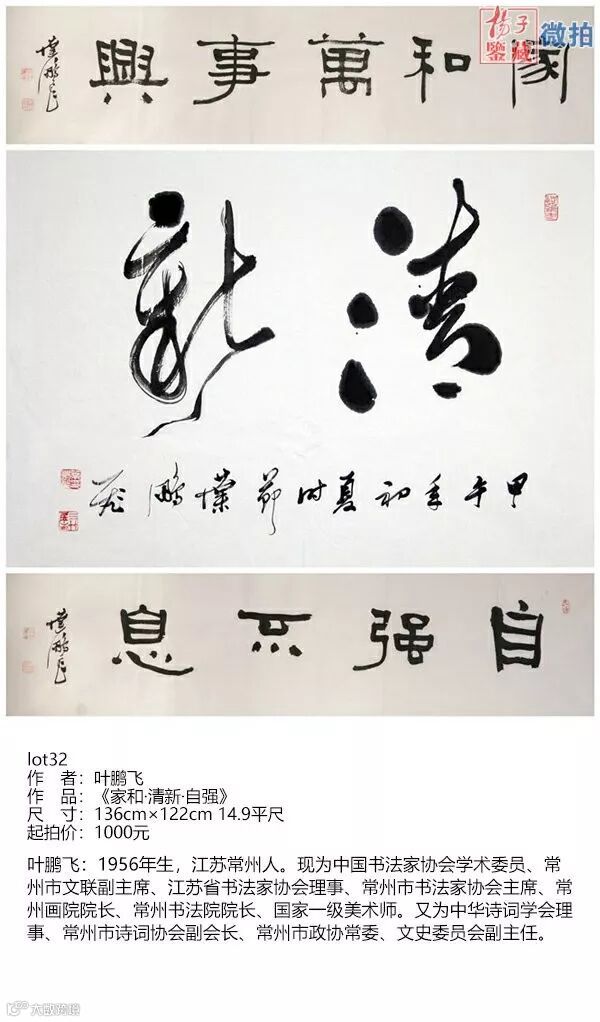 微拍
家和萬事興
清新
甲午年初夏时節葉鹏飞
自强不息
lot32
作 者：叶鹏飞
作 品：《家和·清新·自强》
尺 寸：136cm×122cm 14.9平尺
起拍价：1000元
叶鹏飞：1956年生，江苏常州人。现为中国书法家协会学术委员、常
州市文联副主席、江苏省书法家协会理事、常州市书法家协会主席、常
州画院院长、常州书法院院长、国家一级美术师。又为中华诗词学会理
事、常州市诗词协会副会长、常州市政协常委、文史委员会副主任。
大数跨境